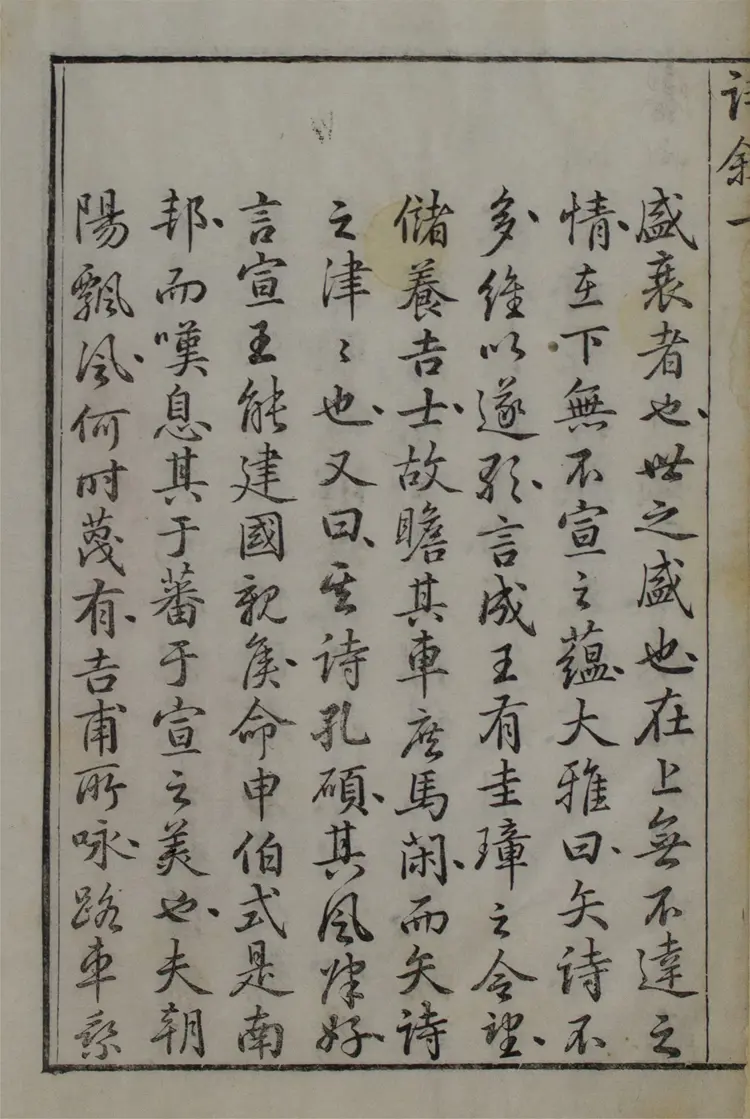 詩叙一
盛衰者也世之盛也在上無不達之
情在下無不宣之蘊大雅曰矢詩不
多維以遂歌言成王有圭璋之令望
儲養吉士故瞻其車庶馬閑而矢詩
之津〻也又曰其詩孔碩其風肆好
言宣王能建國親侯命申伯式是南
邦而嘆息其于蕃于宣之美也夫朝
陽飄風何時蔑有吉甫所咏路車乘